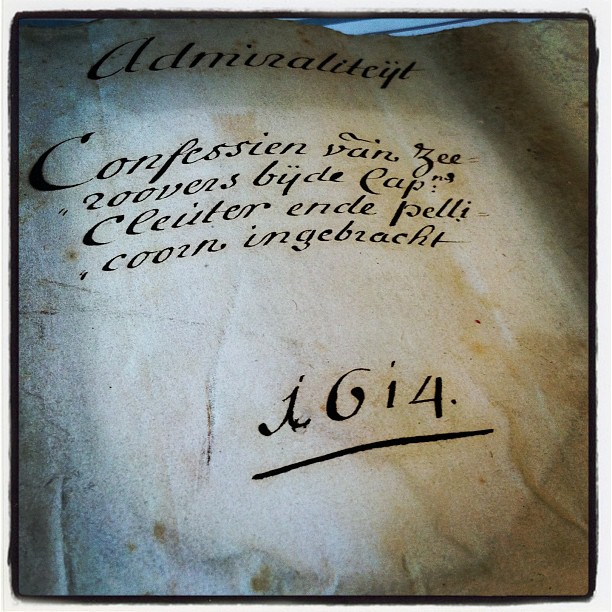 Admiraliteijt
Confessien van Zee=
"roovers bij de Cap:ns
Cleuter ende Pelli=
"coorn ingebracht
1614.